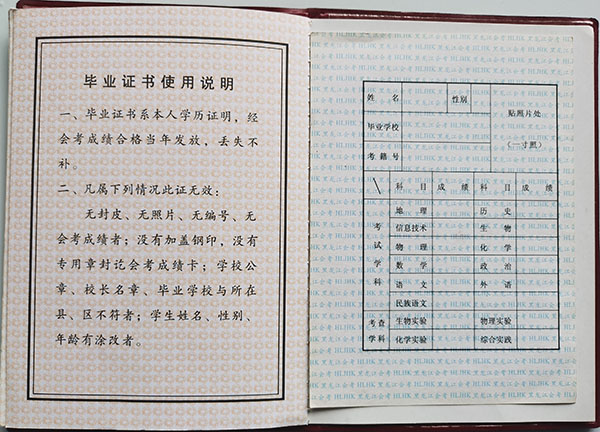 毕业证书使用说明
一、毕业证书系本人学历证明，经
会考成绩合格当年发放，丢失不
补。
二、凡属下列情况此证无效：
无封皮、无照片、无编号、无
会考成绩者；没有加盖钢印，没有
专用章封讫会考成绩卡；学校公
章、校长名章、毕业学校与所在
县、区不符者；学生姓名、性别、
年龄有涂改者。
HLJHK 黑龙江会考
姓 名 性别
贴照片处
毕业学校
（一寸照）
考 籍 号
科 目 成 绩 科 目 成 绩
考试学科
地 理 历 史
信息技术 生 物
物 理 化 学
数 学 政 治
语 文 外 语
民族语文
考查 生物实验 物理实验
学科 化学实验 综合实践